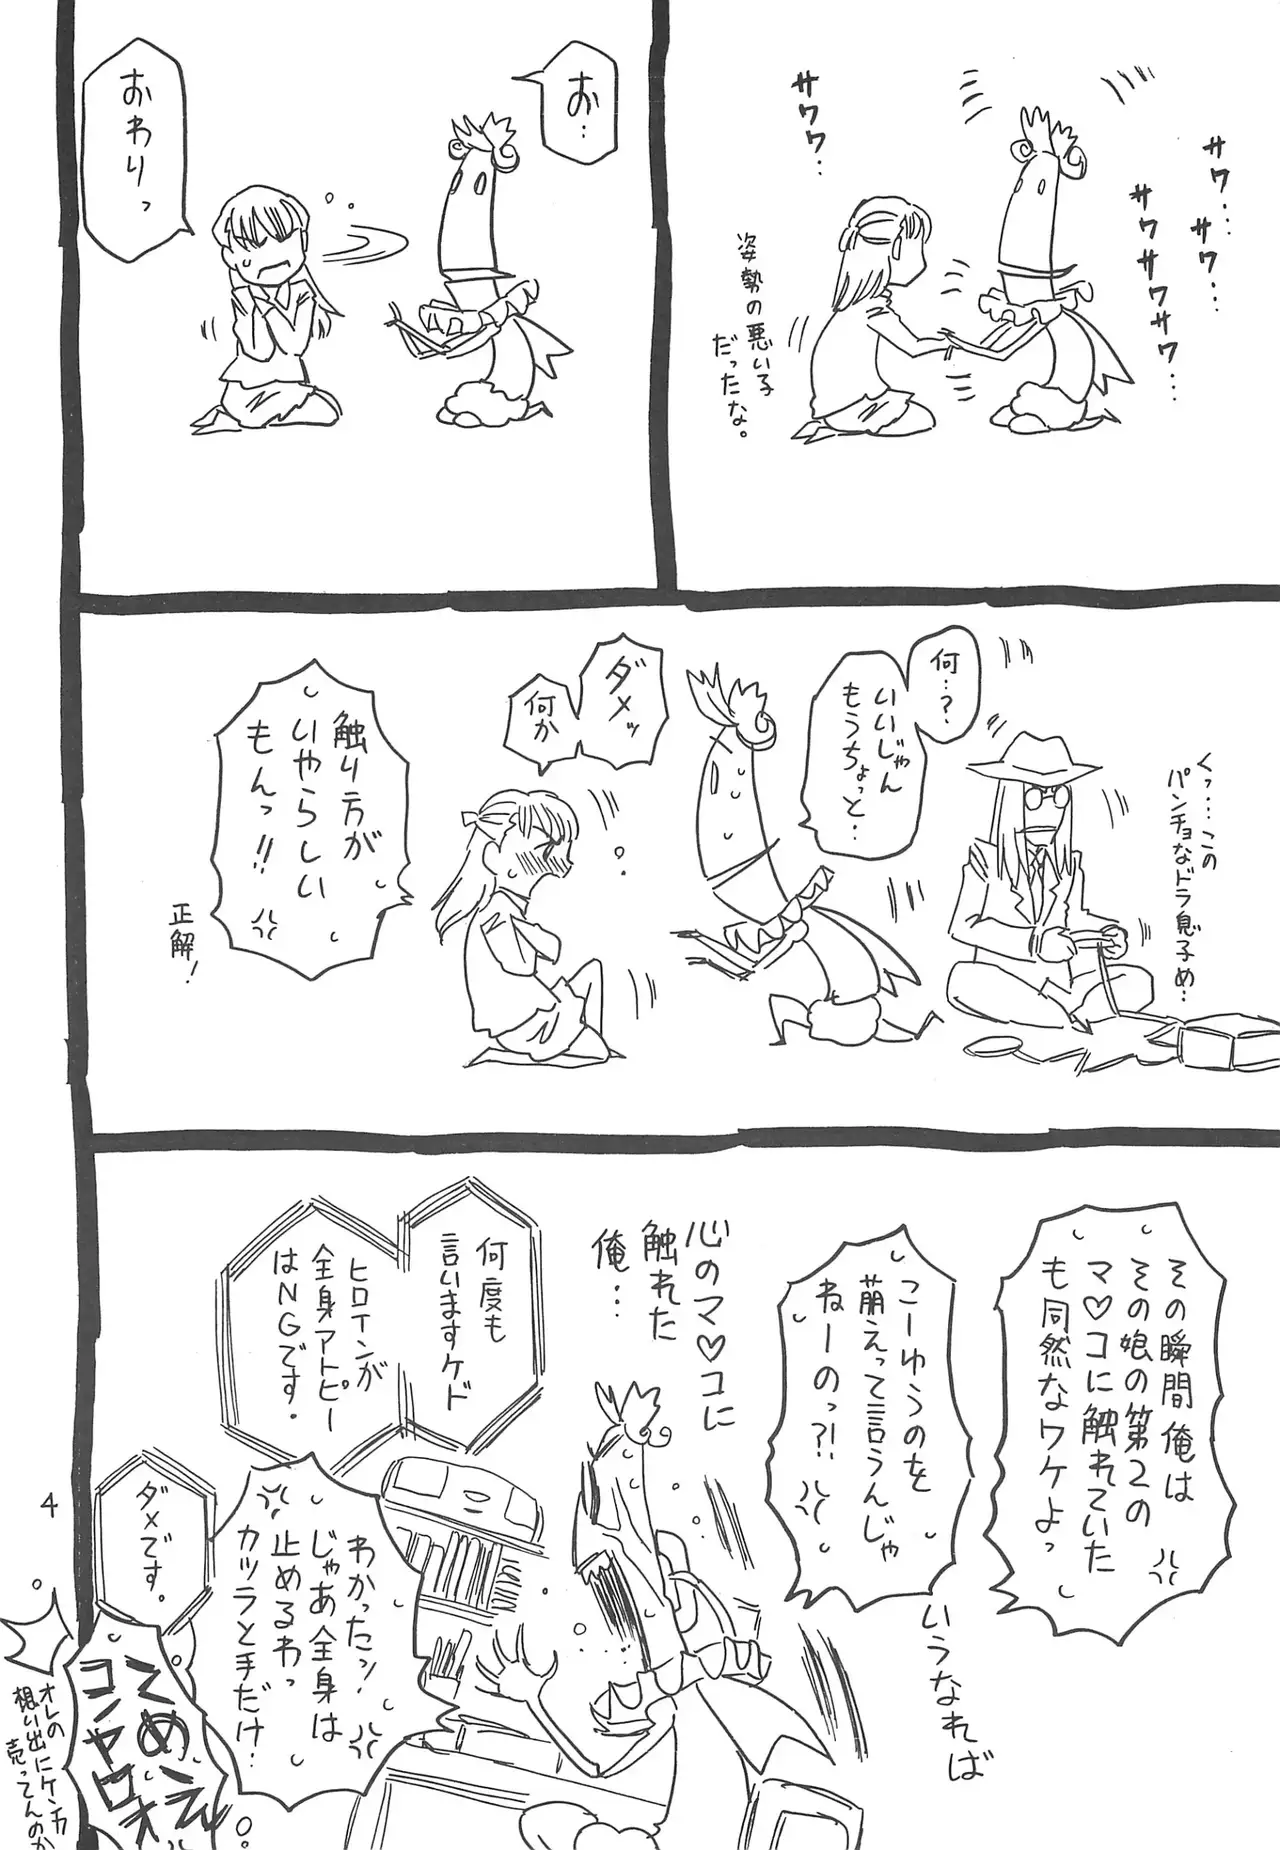 サワ…
サワ…
サワサワサワ…
サワワ…
姿勢の悪い子
だったな。
お…
おわりっ
くっ…この
パンチョなドラ息子め…
何…?
いいじゃん
もうちょっと…
ダメッ
何か
触り方が
いやらしい
もんっ!!
正解!
その瞬間俺は
その娘の第2の
マ♡コに触れていた
も同然なワケよっ
こーゆうのを
萌えって言うんじゃ
ねーのっ?!
いうなれば
心のマ♡コに
触れた
俺…
何度も
言いますケド
ヒロインが
全身アトピー
はNGです.
わかったッ!
じゃあ全身は
止めるわっ
カツラと手だけ…
ダメです。
てめェ
コンヤロォ
オレの
想い出にケンカ
売ってんのか
4